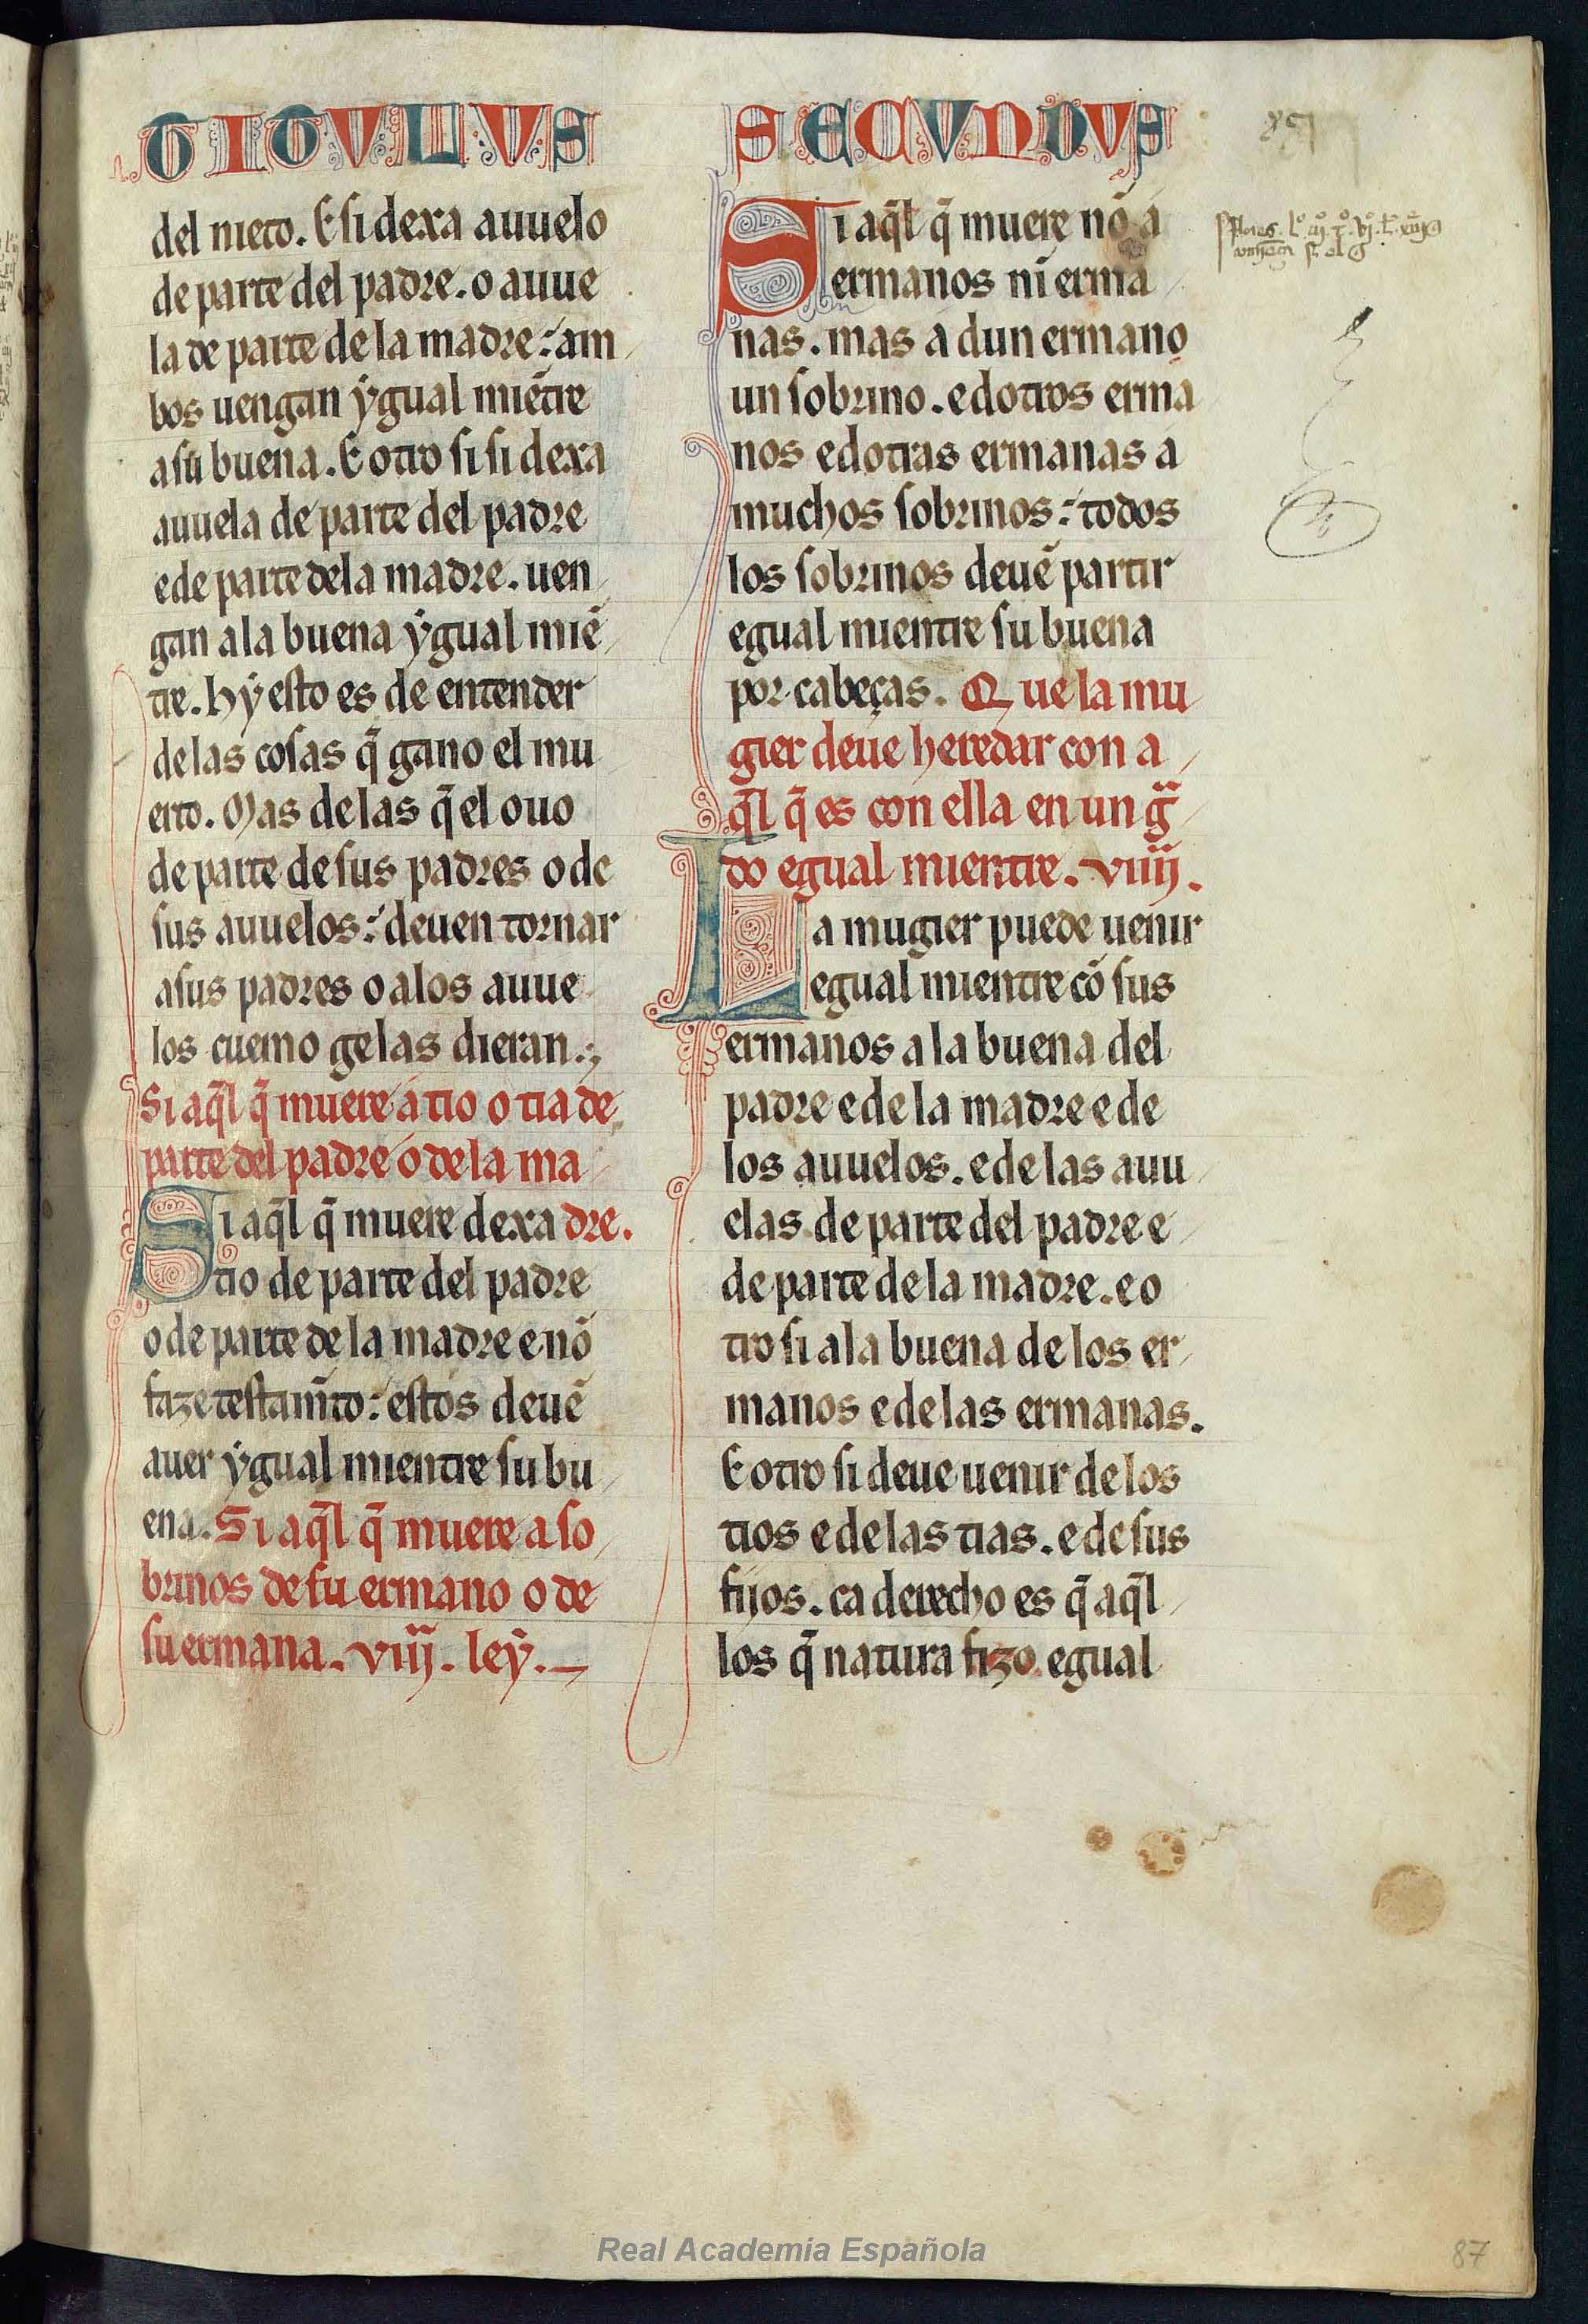 TITVLVS
del nieto. E si dexa auuelo
de parte del padre. o auue
la de parte de la madre: am
bos uengan ẏgual miẽtre
a su buena. E otro si si dexa
auuela de parte del padre
e de parte dela madre. uen
gan ala buena ẏgual miẽ
tre. hẏ esto es de entender
de las cosas q̃ gano el mu
erto. Mas de las q̃ el ouo
de parte de sus padres o de
sus auuelos: deuen tornar
a sus padres o alos auue
los cuemo gelas dieran.
Si aq̃l q̃ muere a tio o tia de
parte del padre o de la ma
dre.
Si aq̃l q̃ muere dexa
tio de parte del padre
o de parte de la madre e nõ
faze testam̃to: estos deuẽ
auer ẏgual mientre su bu
ena. Si aq̃l q̃ muere a so
brinos de su ermano o de
su ermana. viij. leẏ.
SECVNDVS
Si aq̃l q̃ muere nõ a
ermanos ni erma
nas. mas a dun ermano
un sobrino. e dotros erma
nos e dotras ermanas a
muchos sobrinos: todos
los sobrinos deuẽ partir
egual mientre su buena
por cabeças. Que la mu
gier deue heredar con a
q̃l q̃ es con ella en un g̃
do egual mientre. viiij.
La mugier puede uenir
egual mientre cõ sus
ermanos a la buena del
padre e de la madre e de
los auuelos. e de las auu
elas de parte del padre e
de parte de la madre. e o
tro si a la buena de los er
manos e de las ermanas.
E otro si deue uenir de los
tios e de las tias. e de sus
fijos. ca derecho es q̃ aq̃l
los q̃ natura fizo egual
Real Academia Española
87